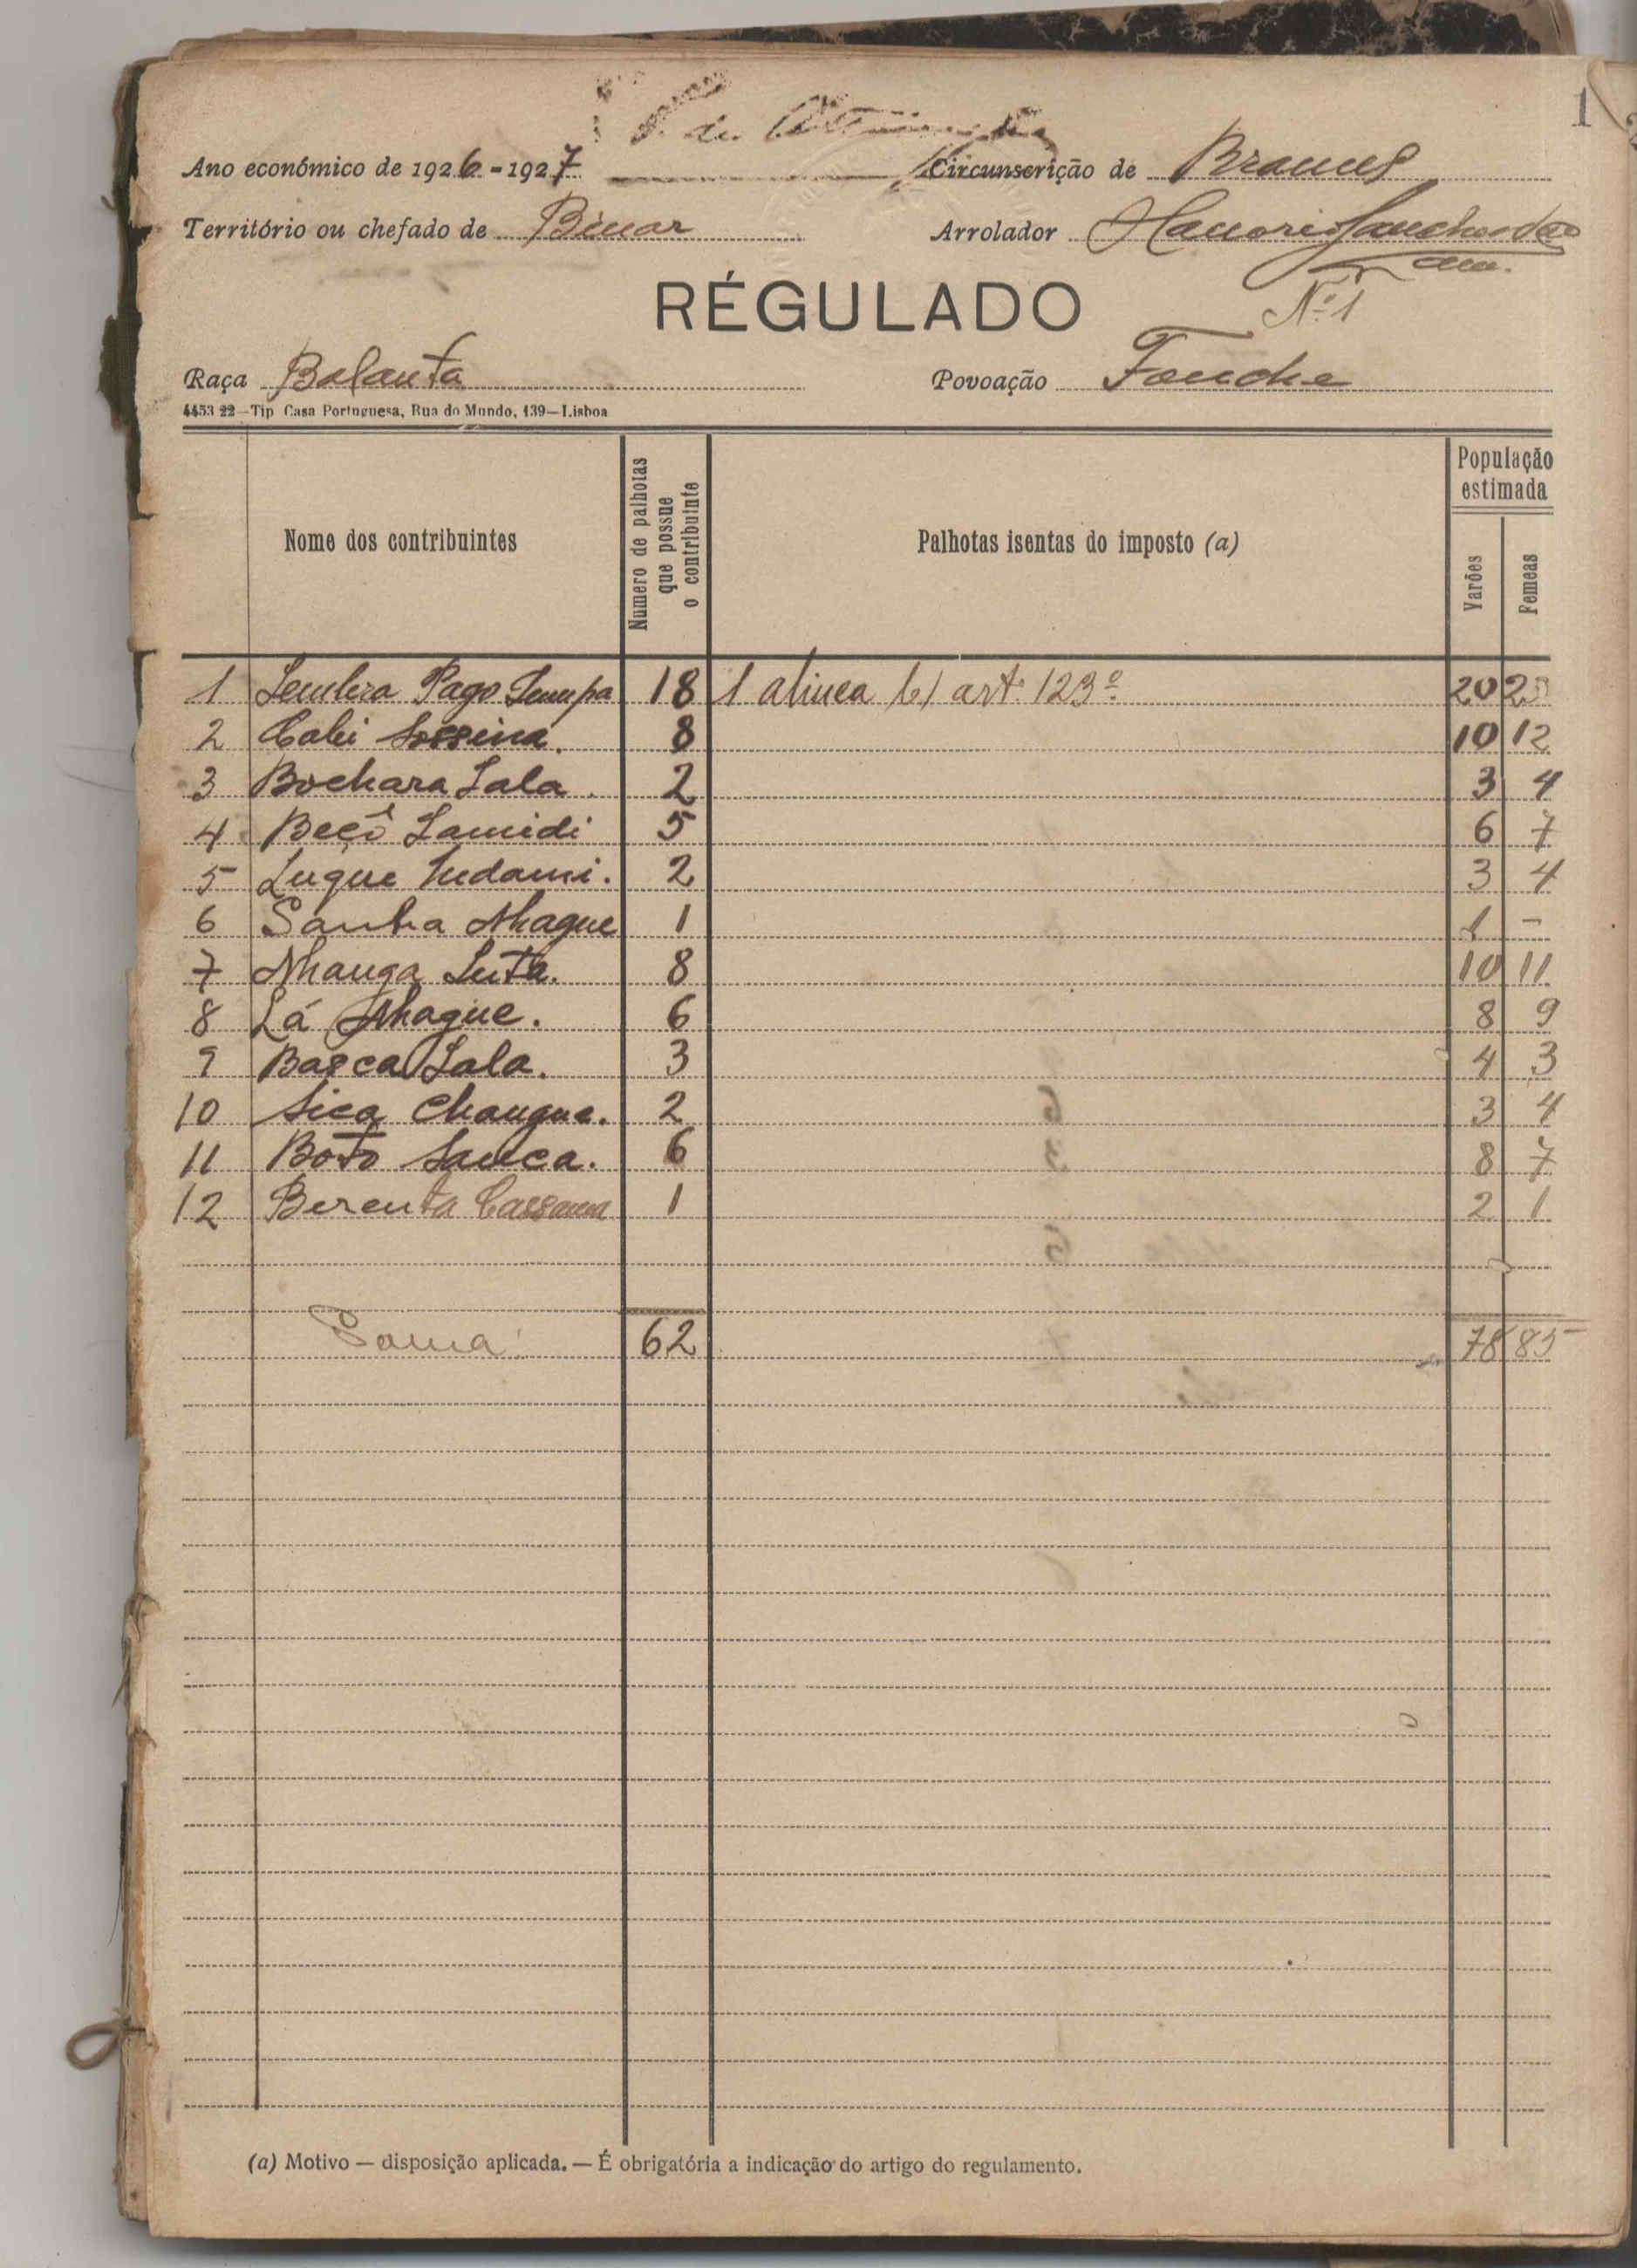 1
Ano económico de 1926-1927 Circunscrição de Brames
Território ou chefado de Binar Arrolador
RÉGULADO
Nº 1
Raça Balanta Povoação Fouche
4453 22—Tip Casa Portuguesa, Rua do Mundo, 139—Lisboa
Nome dos contribuintes Numero de palhotas que possue o contribuinte Palhotas isentas do imposto (a) População estimada
Varões Femeas
1 Pago 18 1 alinea b) art. 123º 20
2 Cabi 8 10 12
3 Bochara Lala. 2 3 4
4 Beçô Lamidi 5 6 7
5 Luque 2 3 4
6 Sanha Nhague 1 1 -
7 Nhanga 8 10 11
8 Lá Nhague. 6 8 9
9 Basca Lala. 3 4 3
10 Sica Changue. 2 3 4
11 Boto Sanca. 6 8 7
12 Berenta Cassama 1 2 1
Soma: 62 78 85
(a) Motivo — disposição aplicada. — É obrigatória a indicação do artigo do regulamento.